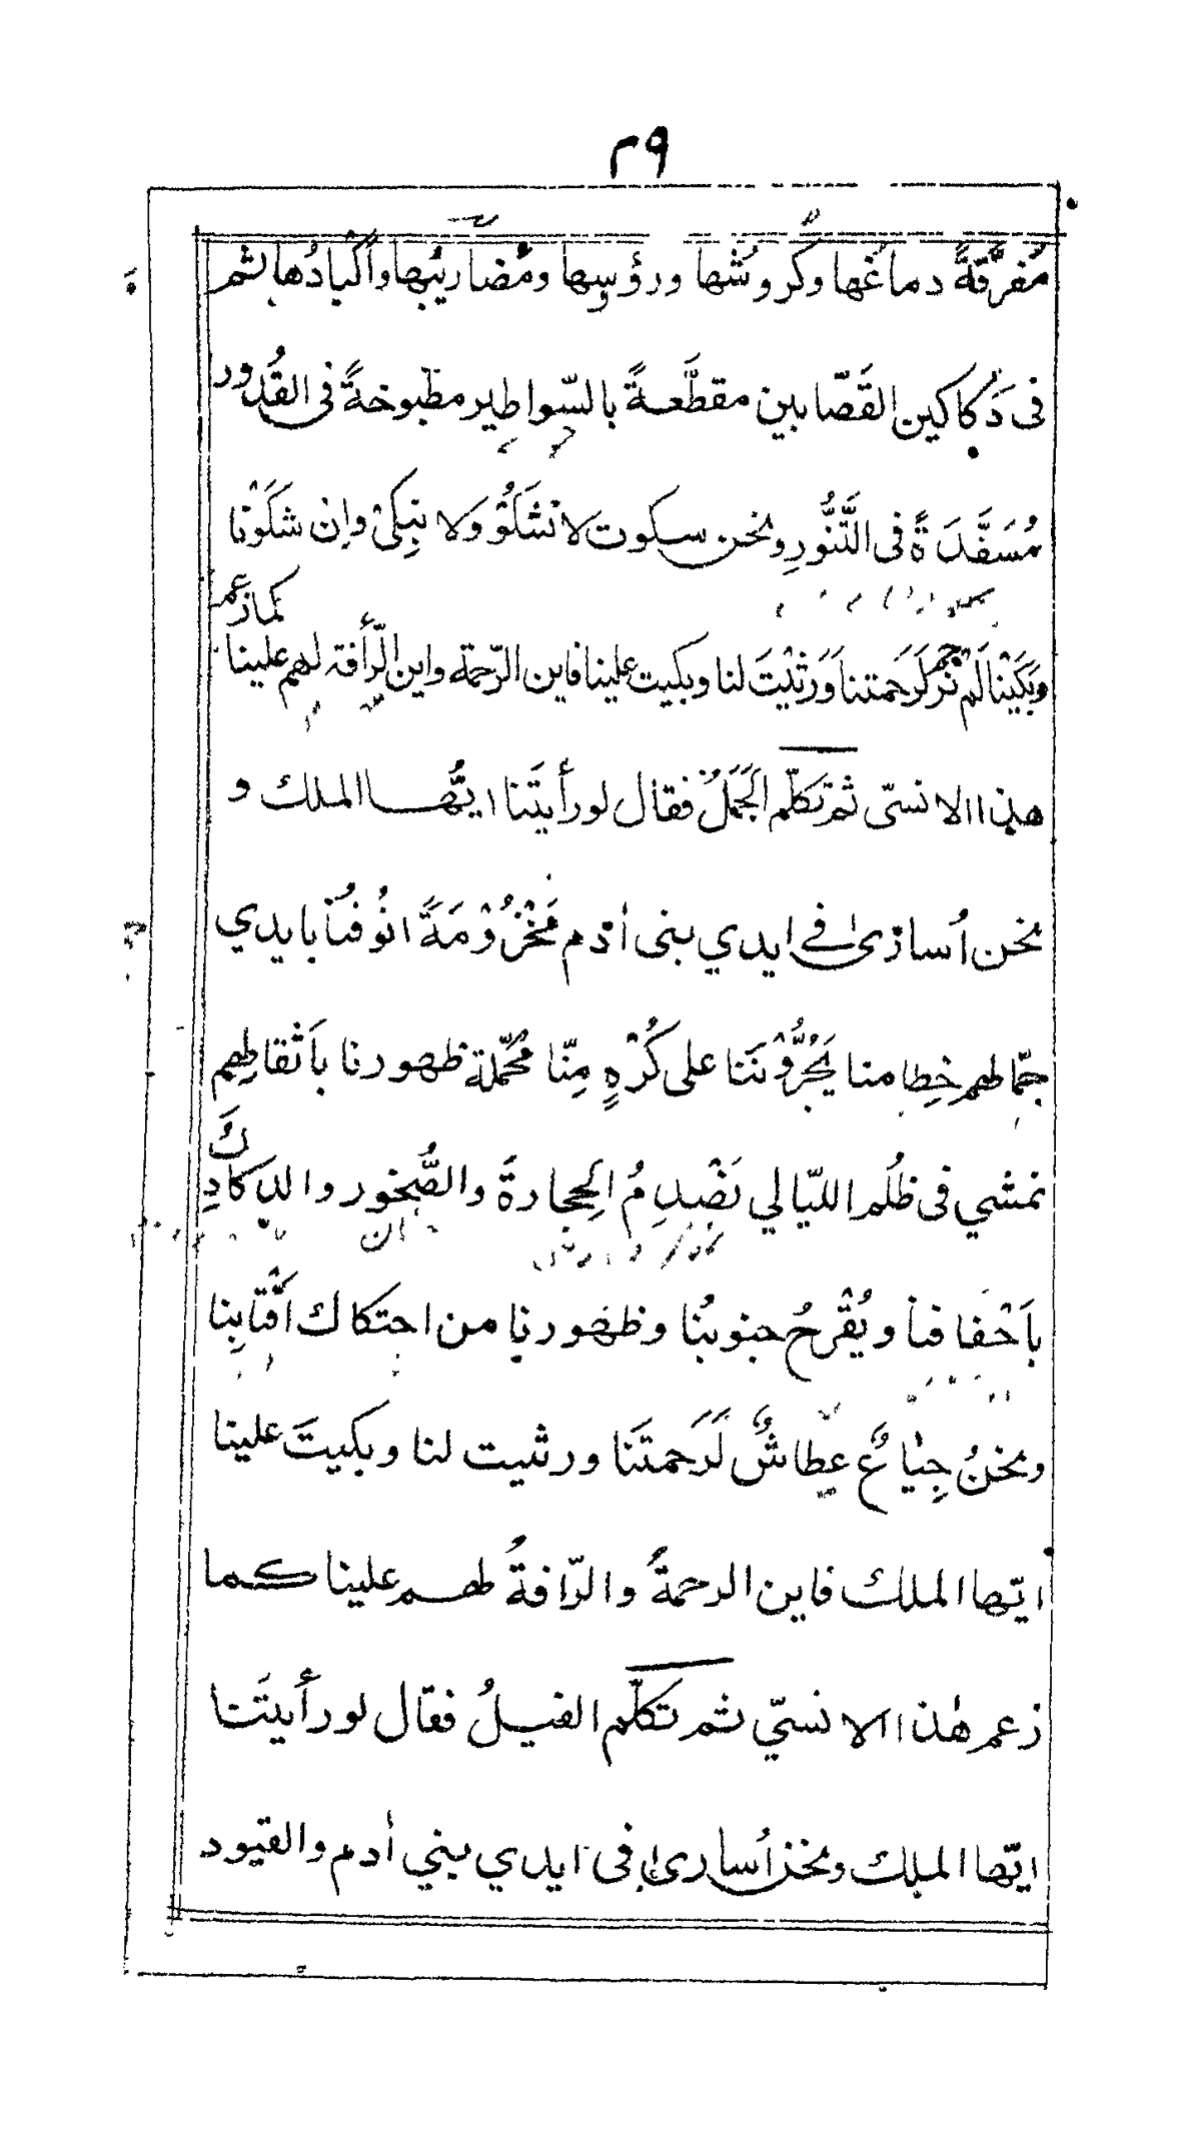 ٢٩
مُفرَّقةً دماغُها وكروشُها ورؤسِها ومُضاريبُها واكبادُها ثم
فى دَكاكين القَصّابين مقطَّعةً بالسّواطير مطبوخةً فى القُدور
مُسَفَّدَةً فى التَّنُّورِ ونحن سكوت لا نَشكُوْ ولا نبِكىْ وإن شكَوْنا
وبَكَيْنا لَمْ نُرحم لَرَحَمتنا وَرَثيْتَ لنا وبكيت علينا فاين الرّحمة واين الرّأفة لهم علينا
كما زعم
هذا الانسىّ ثم تكلّم الجَمَلُ فقال لو رأيتَنا ايُّها الملك و
نحن اُسارىٰ فے ايدي بنى أدم مَخْزُوْمَةً انُوفُنا بايدي
جمّالهم خِطامنا يَجُرُّوْنَنا على كُرْهٍ مِنّا مُحَمّلة ظهورنا باَثقالِهم
نمشي فى ظُلَم الليّالي نَصْدِمُ الحِجارةَ والصُّخور والدكادِكَ
باَخْفافنا ويُقْرحُ جنوبُنا وظهورنا من احتكاك اَقْتابِنا
ونحنُ جِياعٌ عِطاشٌ لَرَحمتَنا ورثيت لنا وبكيتَ علينا
ايّها الملك فاين الرحمةُ والرّافةُ لهم علينا كما
زعم هٰذا الانسيّ ثم تكلّم الفيلُ فقال لو رأيتَنا
ايّها الملك ونحن اُسارىٰ فى ايدي بني أدم والقيود